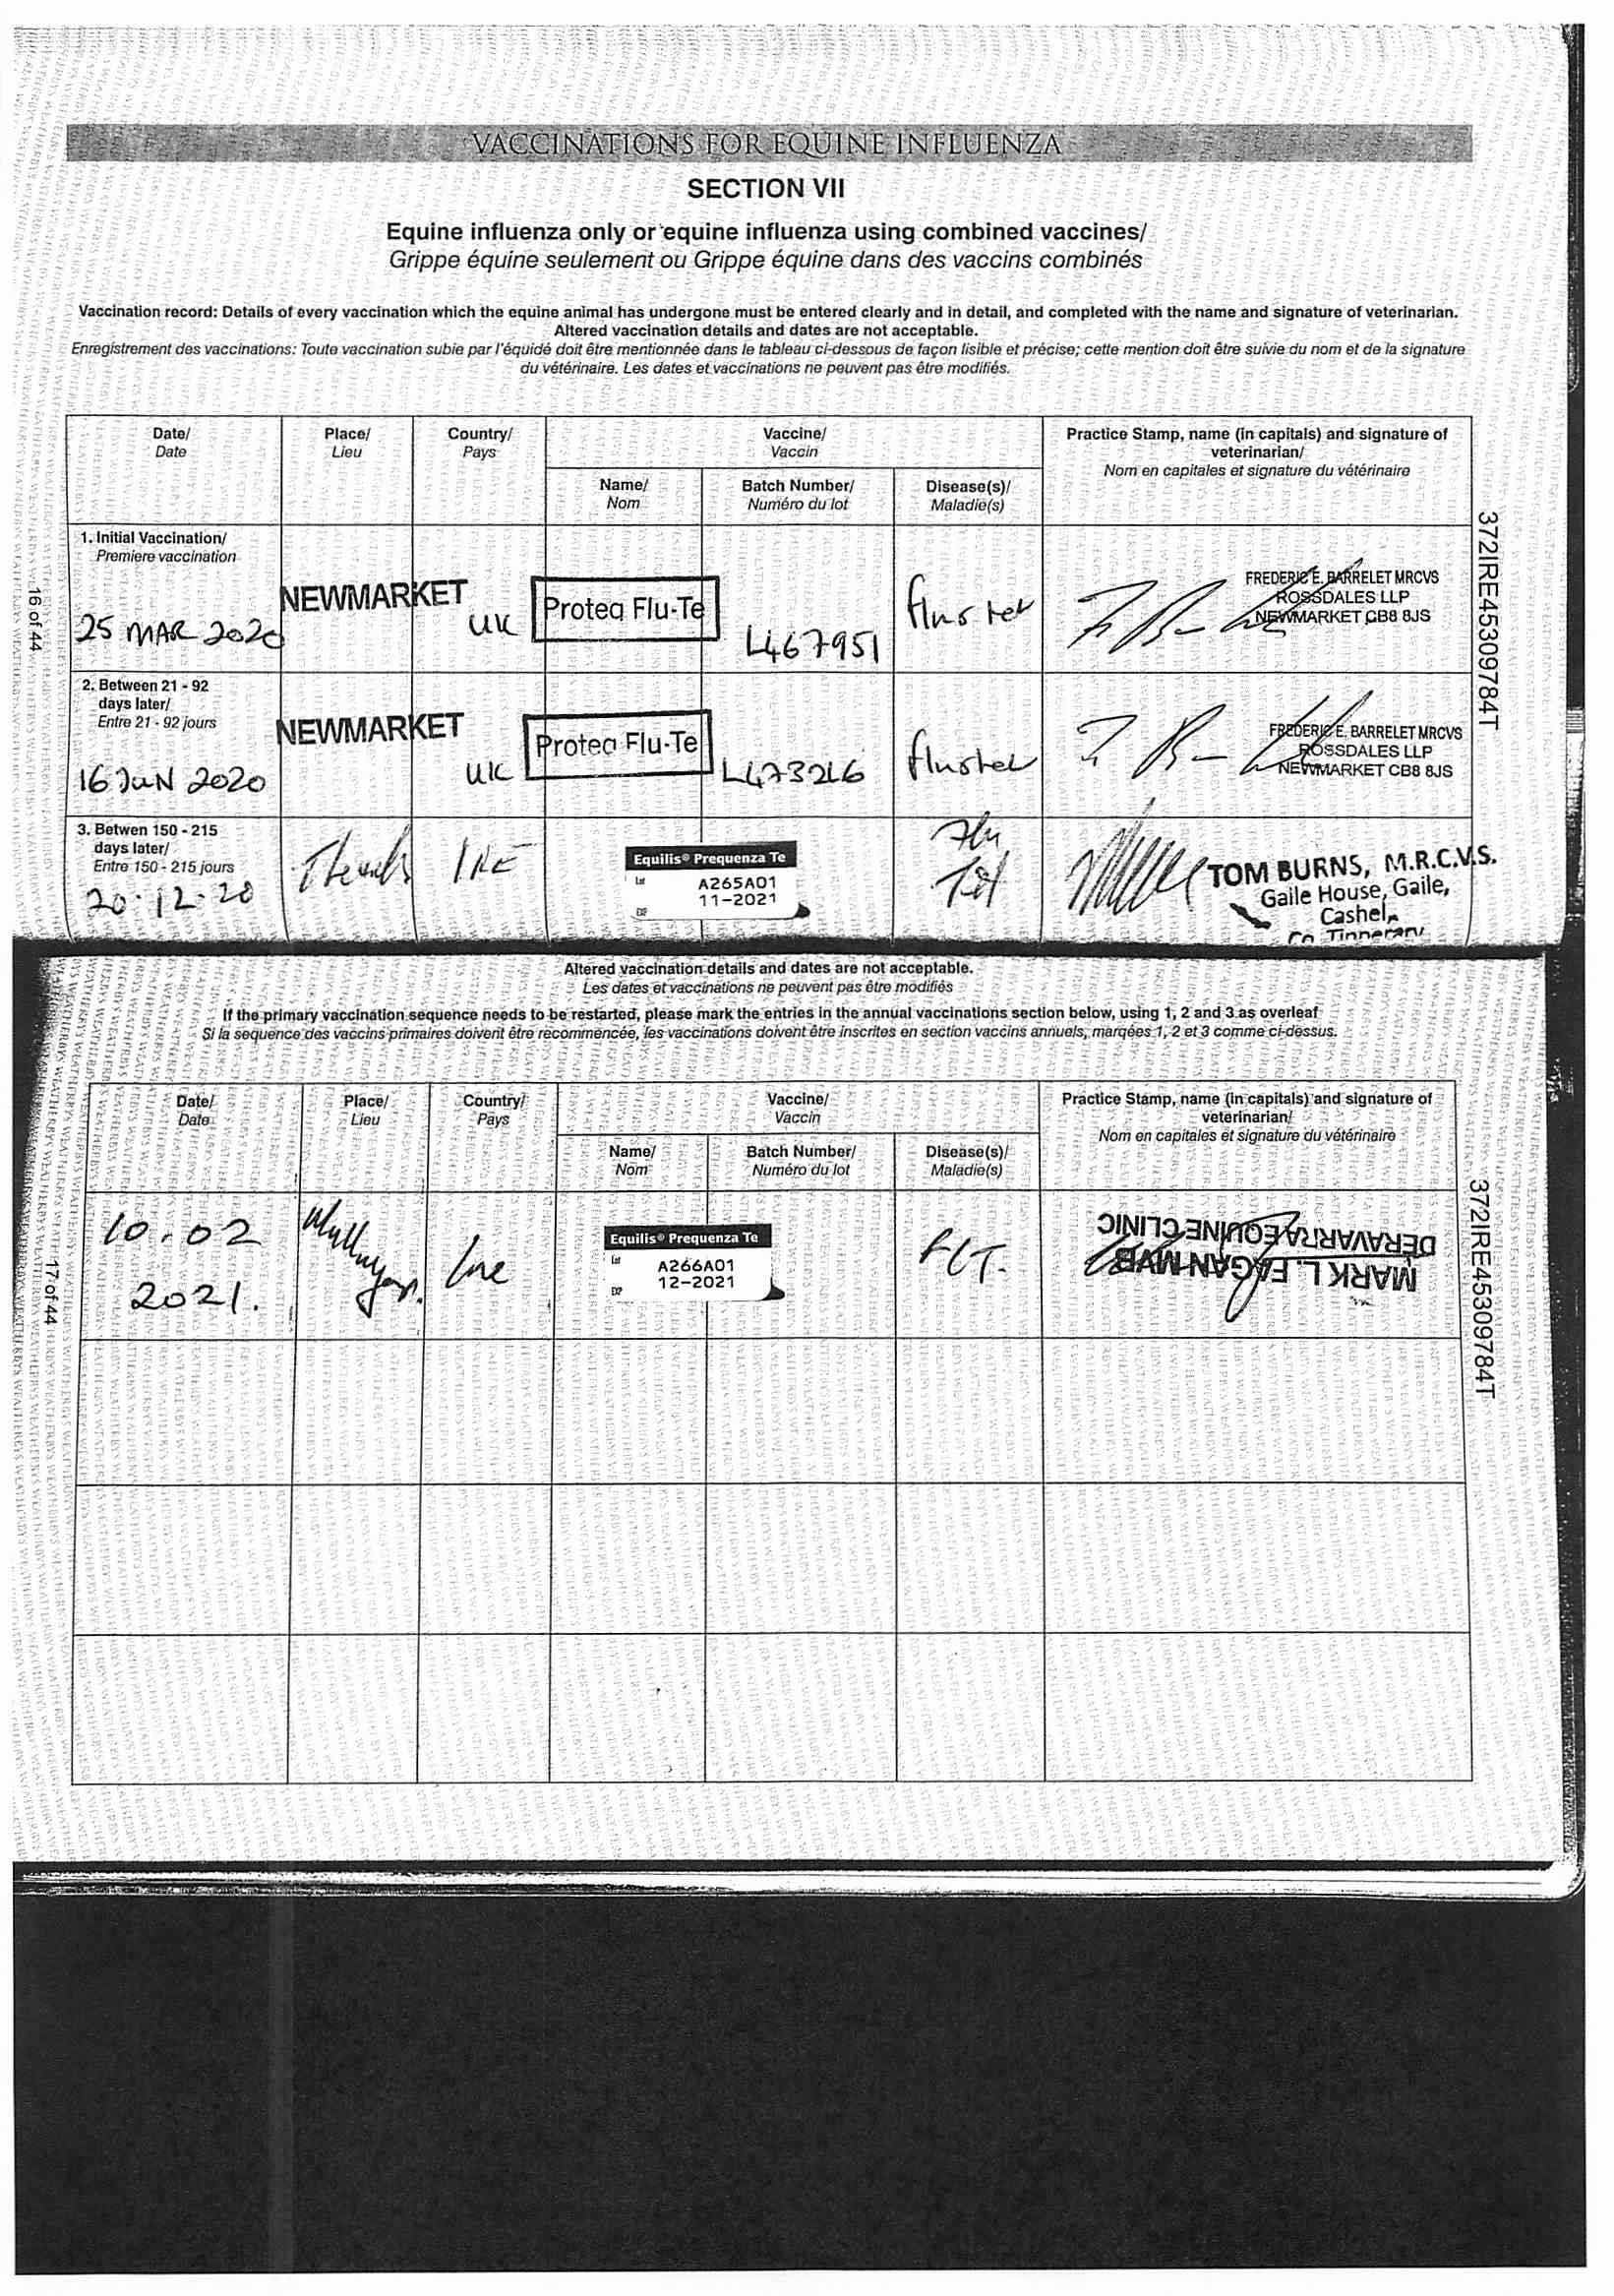 VACCINATIONS FOR EQUINE INFLUENZA
SECTION VII
Equine influenza only or equine influenza using combined vaccines/
Grippe équine seulement ou Grippe équine dans des vaccins combinés
Vaccination record: Details of every vaccination which the equine animal has undergone must be entered clearly and in detail, and completed with the name and signature of veterinarian.
Altered vaccination details and dates are not acceptable.
Enregistrement des vaccinations: Toute vaccination subie par l'équidé doit être mentionnée dans le tableau ci-dessous de façon lisible et précise; cette mention doit être suivie du nom et de la signature
du vétérinaire. Les dates et vaccinations ne peuvent pas être modifiés.
Date/ Place/ Country/ Vaccine/ Practice Stamp, name (in capitals) and signature of
Date Lieu Pays Vaccin veterinarian/
Nom en capitales et signature du vétérinaire
Name/ Batch Number/ Disease(s)/
Nom Numéro du lot Maladie(s)
1. Initial Vaccination/
Premiere vaccination
25 MAR 2020 NEWMARKET UK Protea Flu-Te L467951 flu tet
FREDERIC E. BARRELET MRCVS
ROSSDALES LLP
NEWMARKET CB8 8JS
2. Between 21 - 92
days later/
Entre 21 - 92 jours
16 JUN 2020 NEWMARKET UK Protea Flu-Te L473216 flu tet
FREDERIC E. BARRELET MRCVS
ROSSDALES LLP
NEWMARKET CB8 8JS
3. Betwen 150 - 215
days later/
Entre 150 - 215 jours
20.12.20 IRE
Equilis® Prequenza Te
Lot A265A01
EXP 11-2021
Flu
Tet
TOM BURNS, M.R.C.V.S.
Gaile House, Gaile,
Cashel,
Co Tipperary
16 of 44
372IRE45309784T
Altered vaccination details and dates are not acceptable.
Les dates et vaccinations ne peuvent pas être modifiés
If the primary vaccination sequence needs to be restarted, please mark the entries in the annual vaccinations section below, using 1, 2 and 3 as overleaf
Si la sequence des vaccins primaires doivent être recommencée, les vaccinations doivent être inscrites en section vaccins annuels, marquées 1, 2 et 3 comme ci-dessus.
Date/ Place/ Country/ Vaccine/ Practice Stamp, name (in capitals) and signature of
Date Lieu Pays Vaccin veterinarian/
Nom en capitales et signature du vétérinaire
Name/ Batch Number/ Disease(s)/
Nom Numéro du lot Maladie(s)
10.02
2021. Ire
Equilis® Prequenza Te
Lot A266A01
EXP 12-2021
FLT.
MARK L. FAGAN MVB
DERAVARRA EQUINE CLINIC
17 of 44
372IRE45309784T